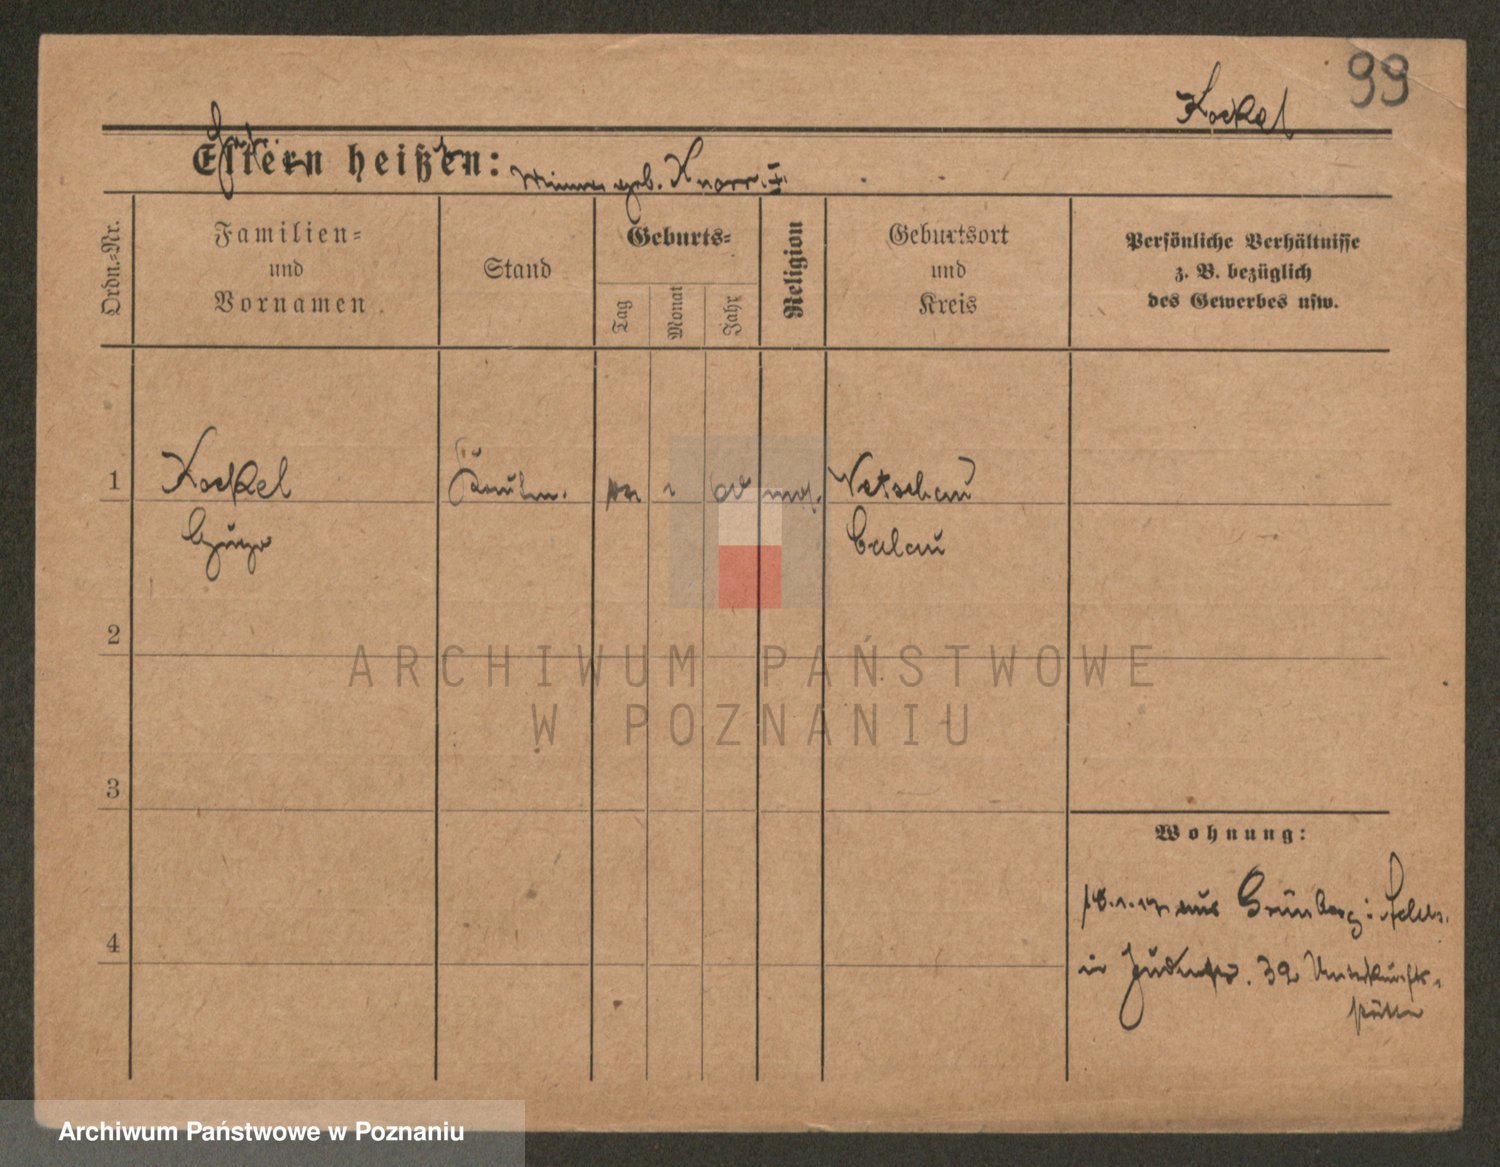 99
Kockel
Eltern heißen:
geb. Knorr
Ordn.-Nr.
Familien-
und
Vornamen
Stand
Geburts-
Tag
Monat
Jahr
Religion
Geburtsort
und
Kreis
Persönliche Verhältnisse
z. B. bezüglich
des Gewerbes usw.
1
Kockel
Hugo
Vetschau
Calau
2
3
4
Wohnung:
aus Grünberg i. Schles.
in Judenstr. 32 Unterkunfts-
ARCHIWUM PAŃSTWOWE
W POZNANIU
Archiwum Państwowe w Poznaniu